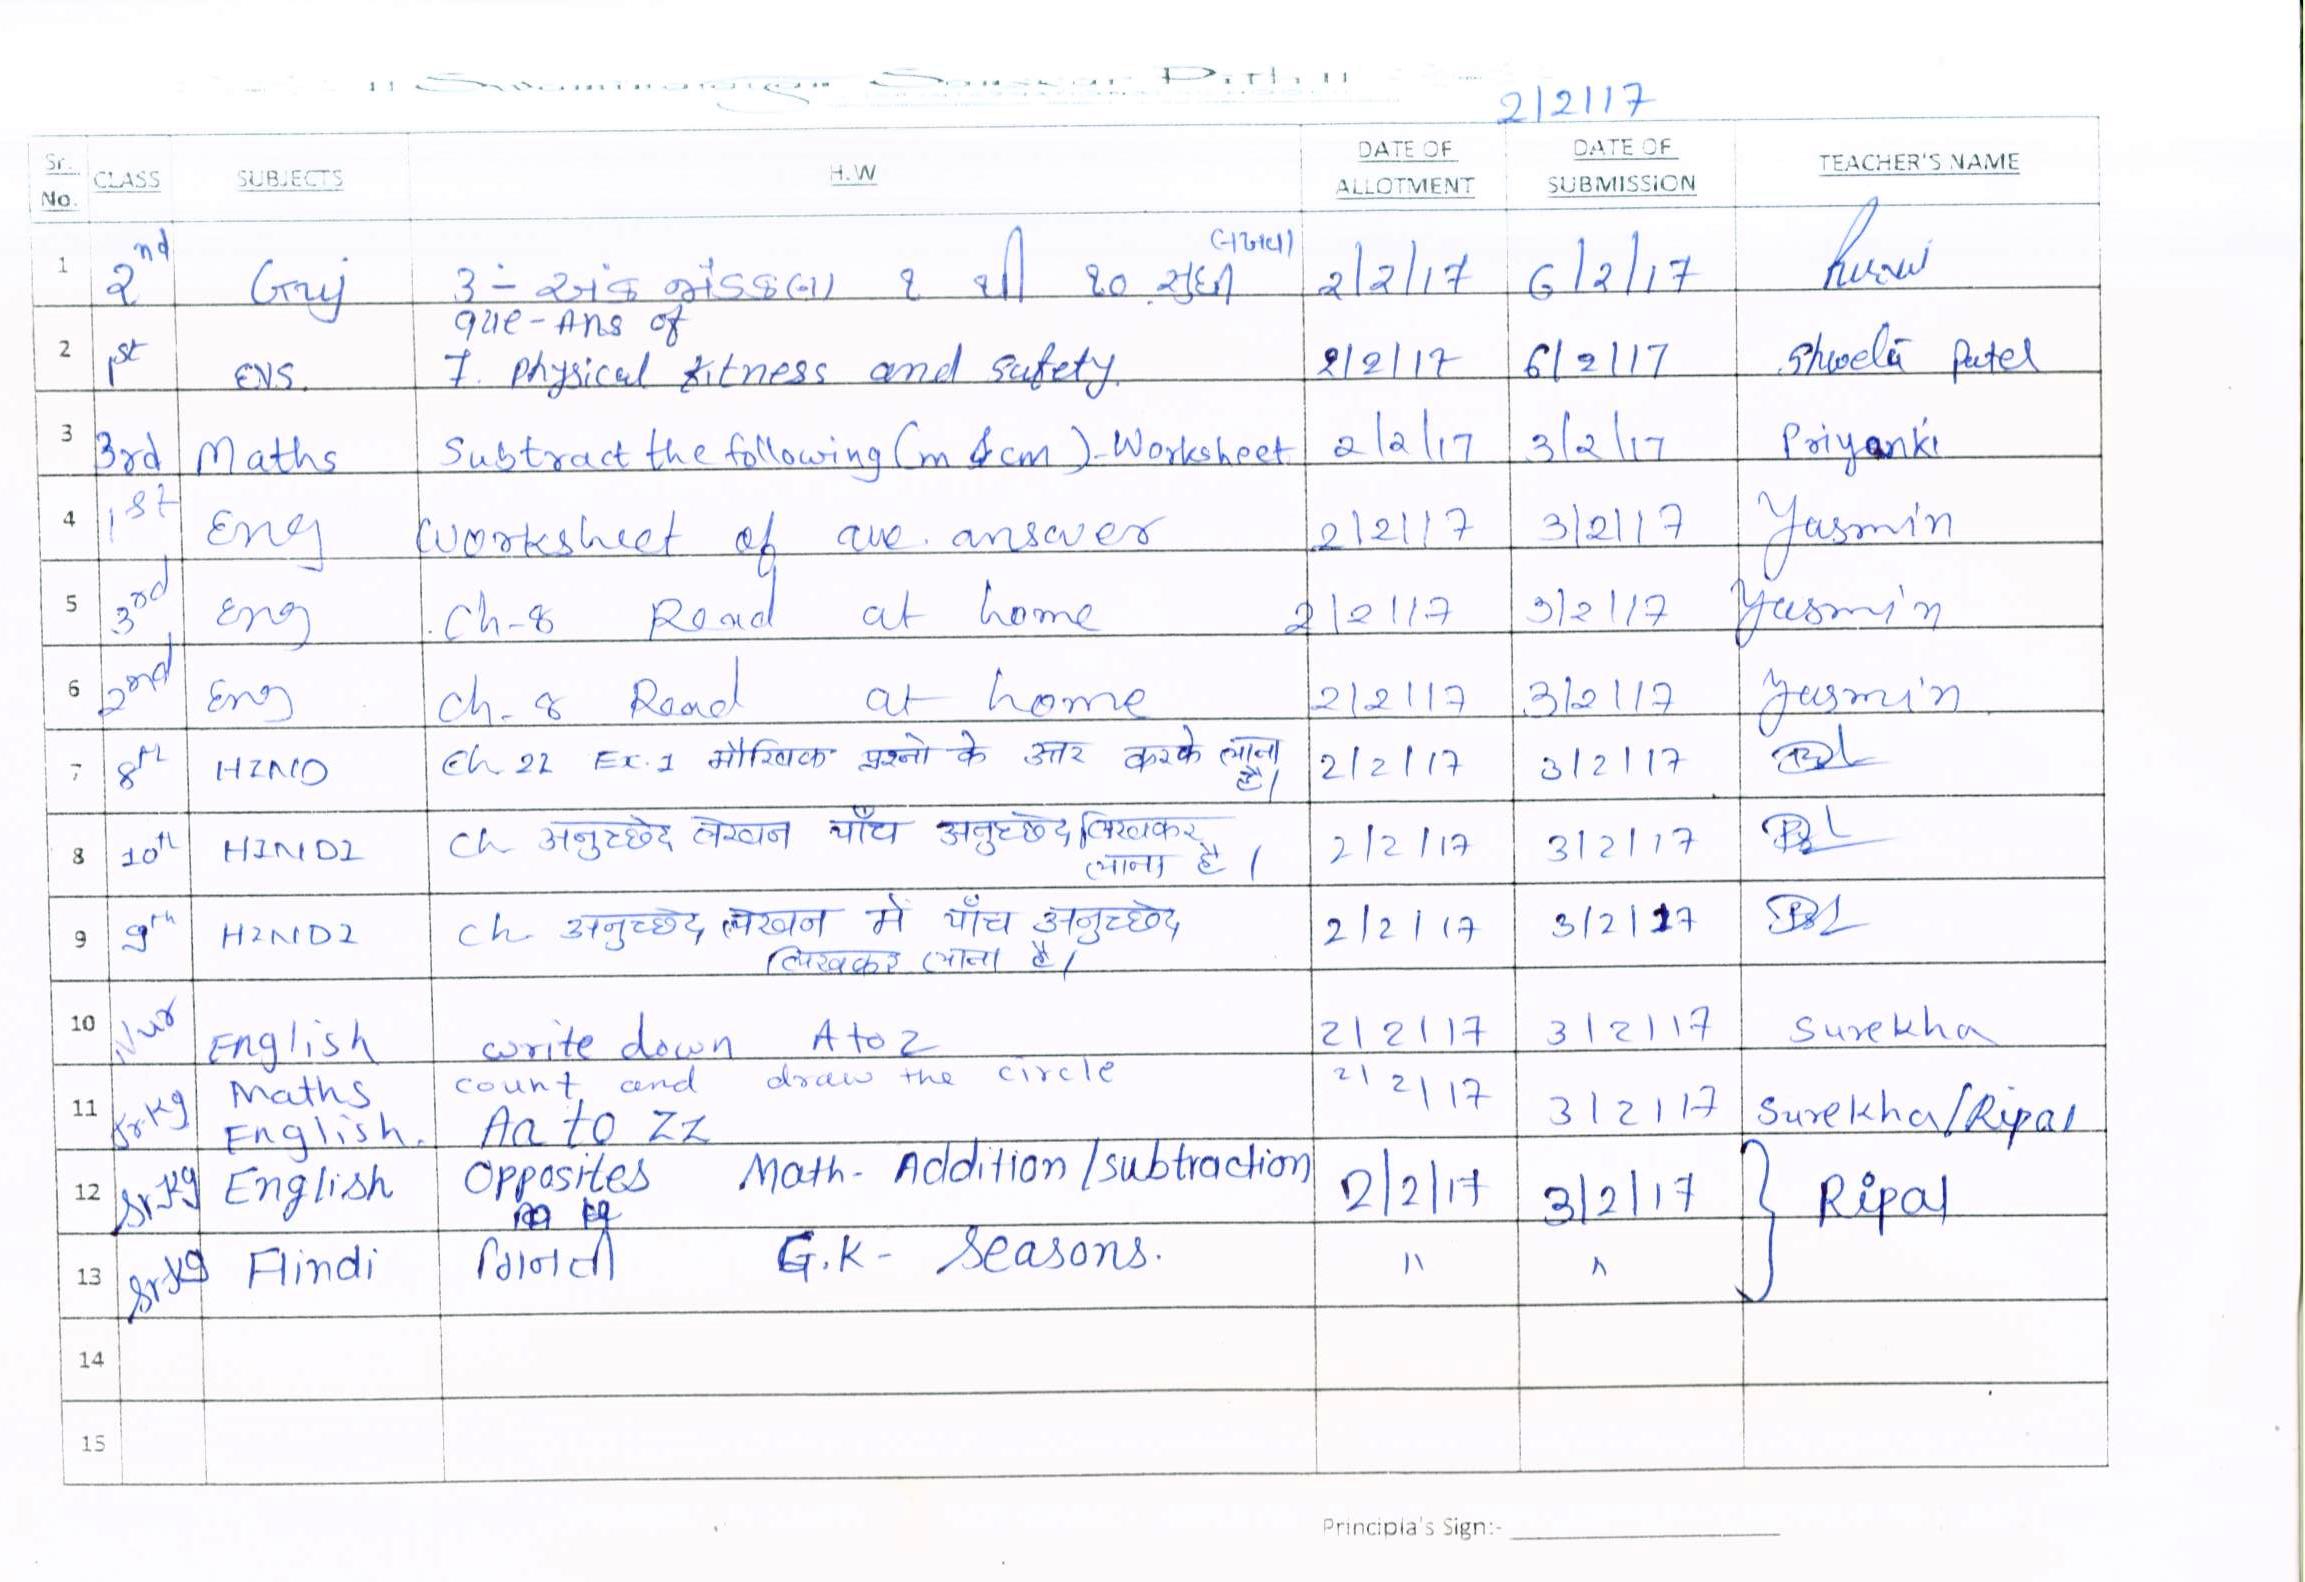 2/2/17
Sr. No. CLASS SUBJECTS H.W DATE OF ALLOTMENT DATE OF SUBMISSION TEACHER'S NAME
1 2nd Guj 3 :- ૨ થી ૨૦ 2/2/17 6/2/17
que-Ans of
2 1st EVS. 7. Physical fitness and safety. 2/2/17 6/2/17 Shweta Patel
3 3rd Maths Subtract the following (m & cm) - Worksheet 2/2/17 3/2/17 Priyanki
4 1st Eng Worksheet of que. answer 2/2/17 3/2/17 Yasmin
5 3rd Eng Ch-8 Read at home 2/2/17 3/2/17 Yasmin
6 2nd Eng Ch-8 Read at home 2/2/17 3/2/17 Yasmin
7 8th HIND Ch 22 Ex.1 मौखिक प्रश्नो के उत्तर करके लाना 2/2/17 3/2/17
है।
8 10th HINDI Ch अनुच्छेद लेखन पाँच अनुच्छेद लिखकर 2/2/17 3/2/17
लाना है।
9 9th HINDI Ch अनुच्छेद लेखन में पाँच अनुच्छेद 2/2/17 3/2/17
लिखकर लाना है।
10 Nur English write down A to Z 2/2/17 3/2/17 Surekha
Maths count and draw the circle 2/2/17
11 Jr.kg English. Aa to Zz 3/2/17 Surekha/Ripal
12 Sr.kg English Opposites Math- Addition/subtraction 2/2/17 3/2/17 Ripal
13 Sr.kg Hindi गिनती G.K- Seasons. " "
14
15
Principla's Sign:-